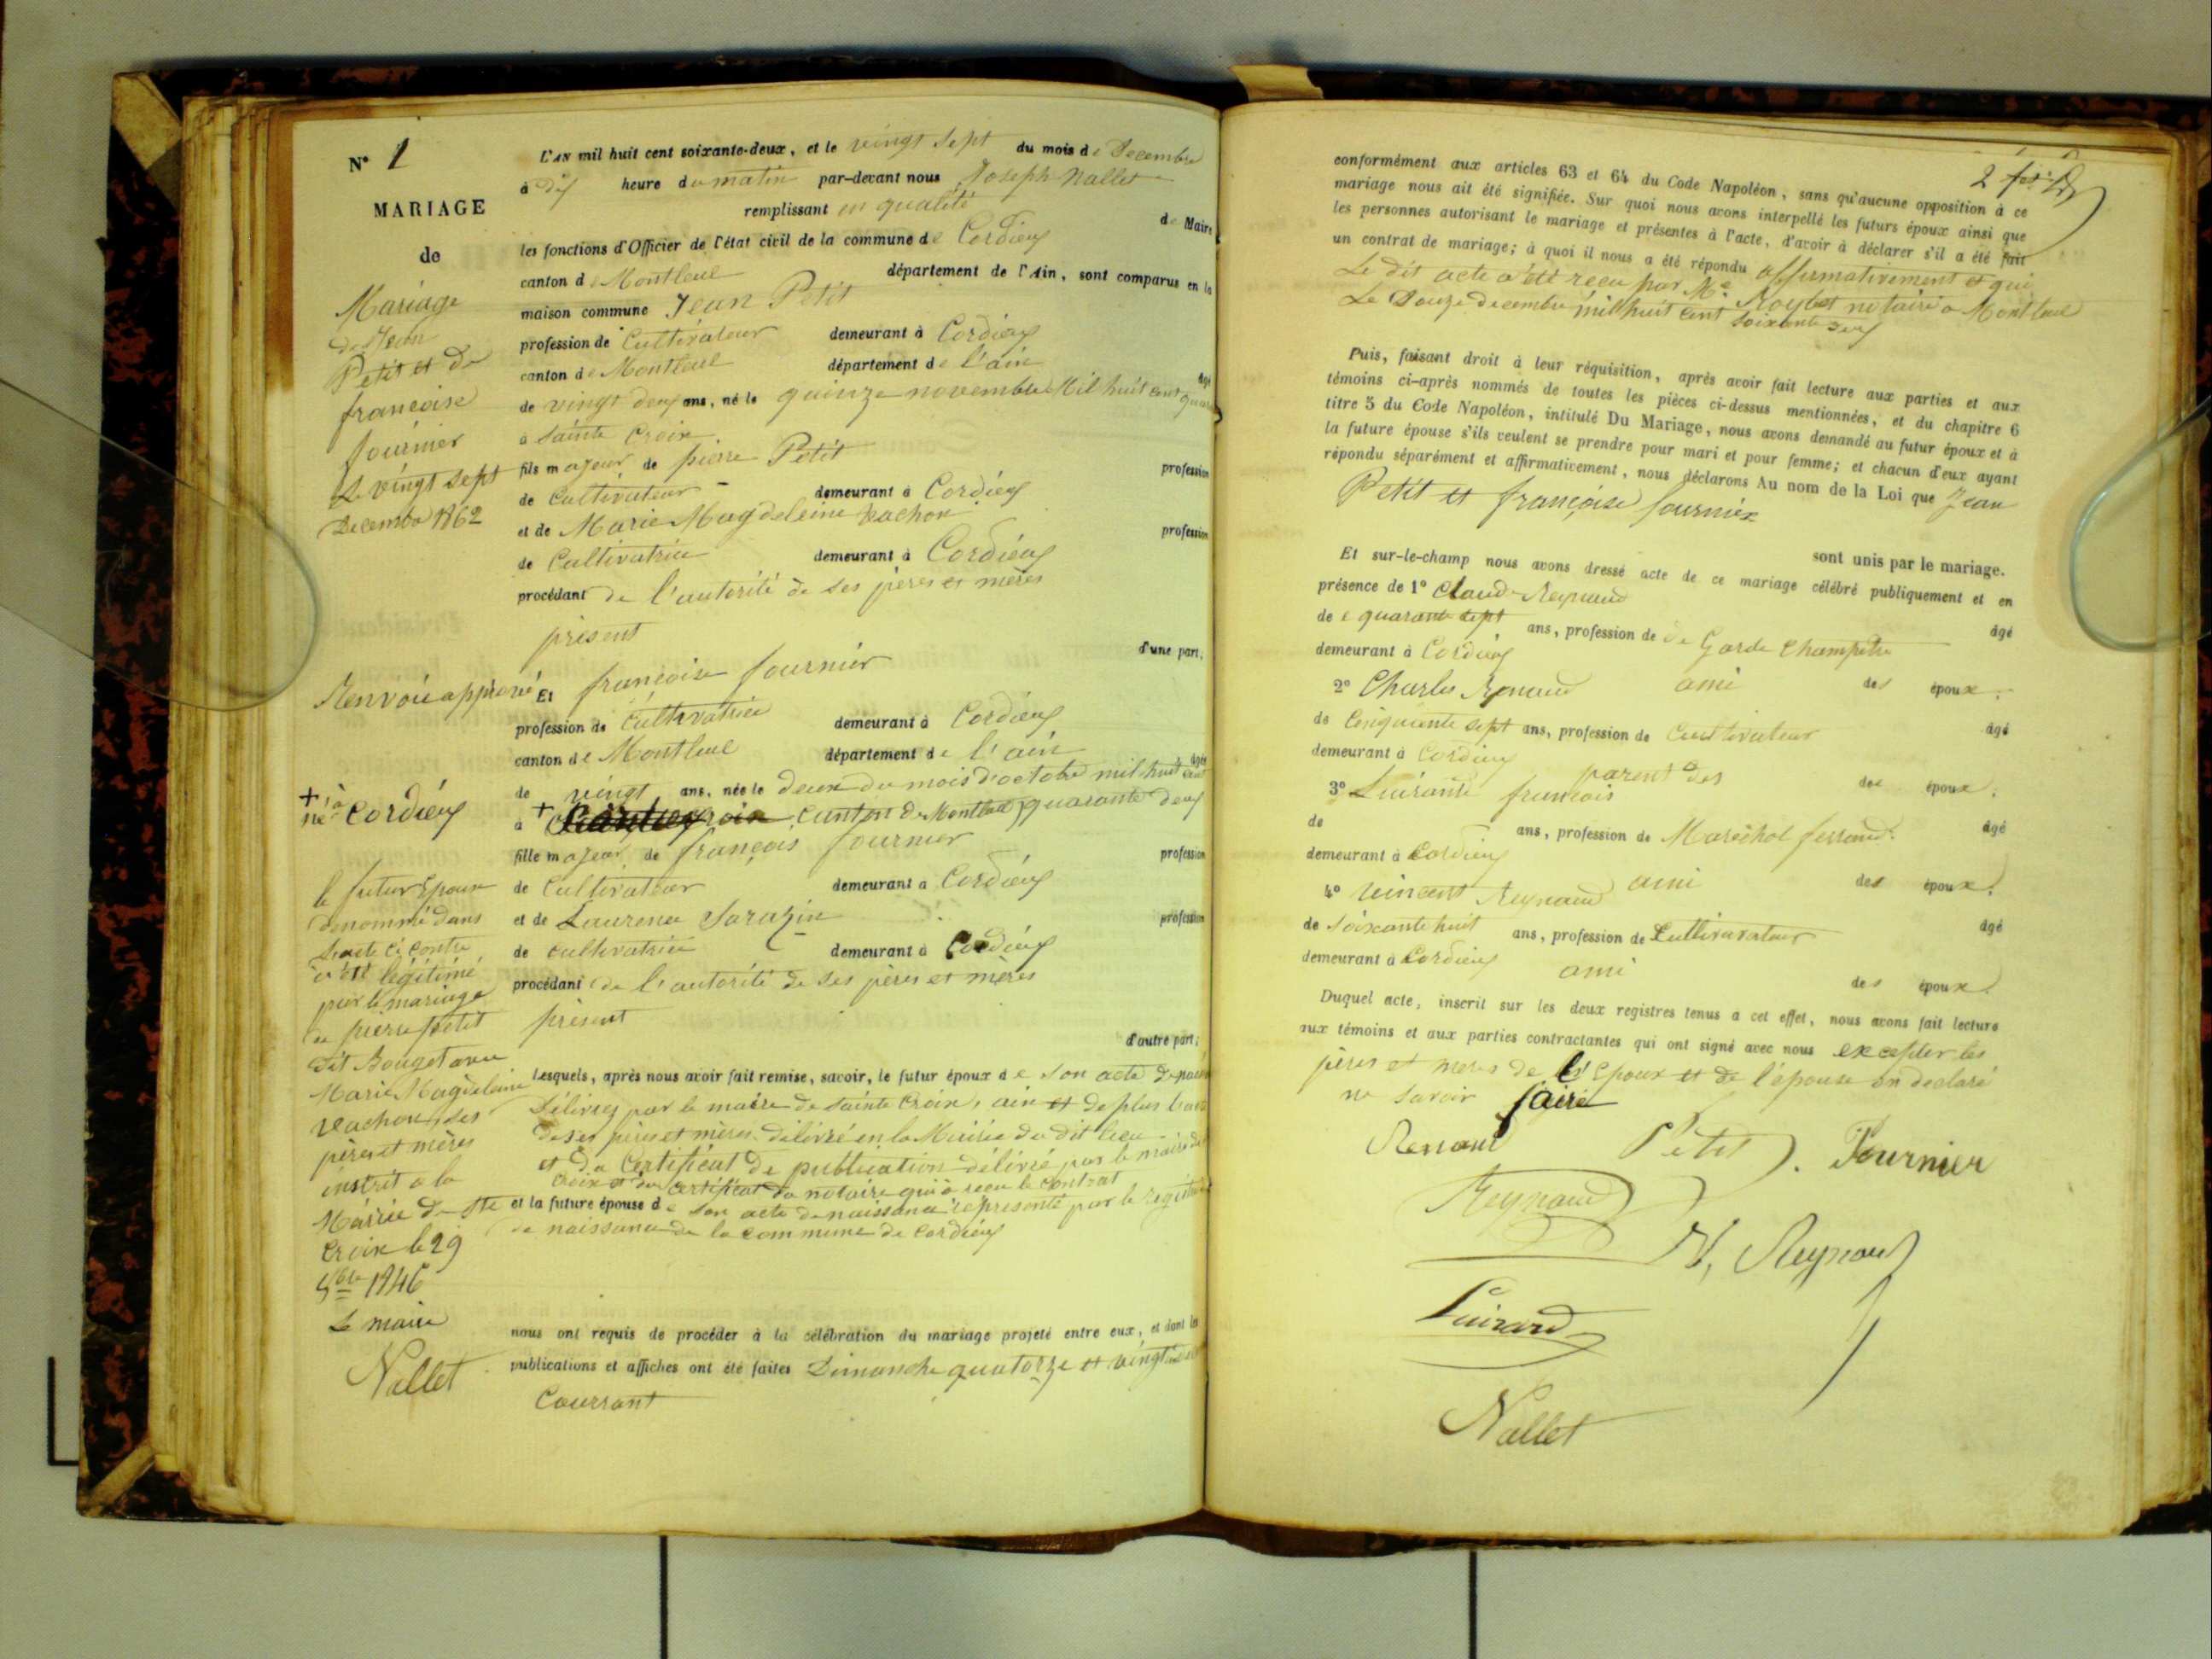 N° 1
MARIAGE
de
Mariage
de Jean
Petit et de
françoise
fournier
Le vingt sept
Decembre 1862
L'AN mil huit cent soixante-deux, et le vingt sept du mois de Decembre
à dix heure du matin par-devant nous Joseph Nallet
remplissant en qualité de Maire
les fonctions d'Officier de l'état civil de la commune de Cordieux
canton de Montluel département de l'Ain, sont comparus en la
maison commune Jean Petit
profession de Cultivateur demeurant à Cordieux
canton de Montluel département de l'ain
âgé
de vingt deux ans, né le quinze novembre Mil huit cent
à Sainte Croix
fils majeur de pierre Petit profession
de Cultivateur demeurant à Cordieux
et de Marie Magdeleine Vachon profession
de Cultivatrice demeurant à Cordieux
procédant de l'autorité de ses pères et mères
présent
d'une part,
Renvoie approuvé
Et françoise fournier
profession de Cultivatrice demeurant à Cordieux
canton de Montluel département de l'ain
âgée
de vingt ans, née le deux du mois d'octobre mil huit cent
+ née à Cordieux
à + canton de Montluel quarante deux
fille majeur de françois fournier profession
de Cultivateur demeurant a Cordieux
et de Laurence Sarazin profession
de cultivatrice demeurant à Cordieux
procédant de l'autorité de ses pères et mères
présent
d'autre part;
le futur Epoux
denommé dans
L'acte ci contre
a été légitimé
par le mariage
de pierre petit
dit Bouget avec
Marie Magdeleine
Vachon, ses
pères et mères
inscrit a la
Mairie de Ste
Croix le 29
9bre 1846
Le maire
Nallet
Lesquels, après nous avoir fait remise, savoir, le futur époux de son acte de
délivrez par le maire de sainte Croix, ain et de plus
de ses pères et mères délivré en la Mairie du dit lieu
et du Certificat de publication délivré par le maire de
Croix et du certificat du notaire qui a reçu le contrat
et la future épouse de son acte de naissance représenté par le
de naissance de la commune de Cordieux
nous ont requis de procéder à la célébration du mariage projeté entre eux, et dont les
publications et affiches ont été faites Dimanche quatorze et vingt
Courrant
2
conformément aux articles 63 et 64 du Code Napoléon, sans qu'aucune opposition à ce
mariage nous ait été signifiée. Sur quoi nous avons interpellé les futurs époux ainsi que
les personnes autorisant le mariage et présentes à l'acte, d'avoir à déclarer s'il a été fait
un contrat de mariage; à quoi il nous a été répondu affirmativement et qui
Le dit acte a été reçu par Me Roybet notaire a Montluel
Le Douze decembre mil huit cent soixante deux
Puis, faisant droit à leur réquisition, après avoir fait lecture aux parties et aux
témoins ci-après nommés de toutes les pièces ci-dessus mentionnées, et du chapitre 6
titre 5 du Code Napoléon, intitulé Du Mariage, nous avons demandé au futur époux et à
la future épouse s'ils veulent se prendre pour mari et pour femme; et chacun d'eux ayant
répondu séparément et affirmativement, nous déclarons Au nom de la Loi que Jean
Petit et françoise fournier
sont unis par le mariage.
Et sur-le-champ nous avons dressé acte de ce mariage célébré publiquement et en
présence de 1° Claude Reynaud âgé
de quarante sept ans, profession de de Garde Champetre
demeurant à Cordieux ami des époux.
2° Charles Renaud âgé
de Cinquante sept ans, profession de Cultivateur
demeurant à Cordieux parent des des époux.
3° Luirard françois âgé
de ans, profession de Maréchal ferrand
demeurant à Cordieux ami des époux.
4° Vincent Reynaud âgé
de soixante huit ans, profession de Cultivavateur
demeurant à Cordieux ami des époux.
Duquel acte, inscrit sur les deux registres tenus a cet effet, nous avons fait lecture
aux témoins et aux parties contractantes qui ont signé avec nous excepter les
pères et meres de l'époux et de l'épouse on declaré
ne savoir faire
Renaud Petit. Fournier
Reynaud
Reynaud
Luirard
Nallet